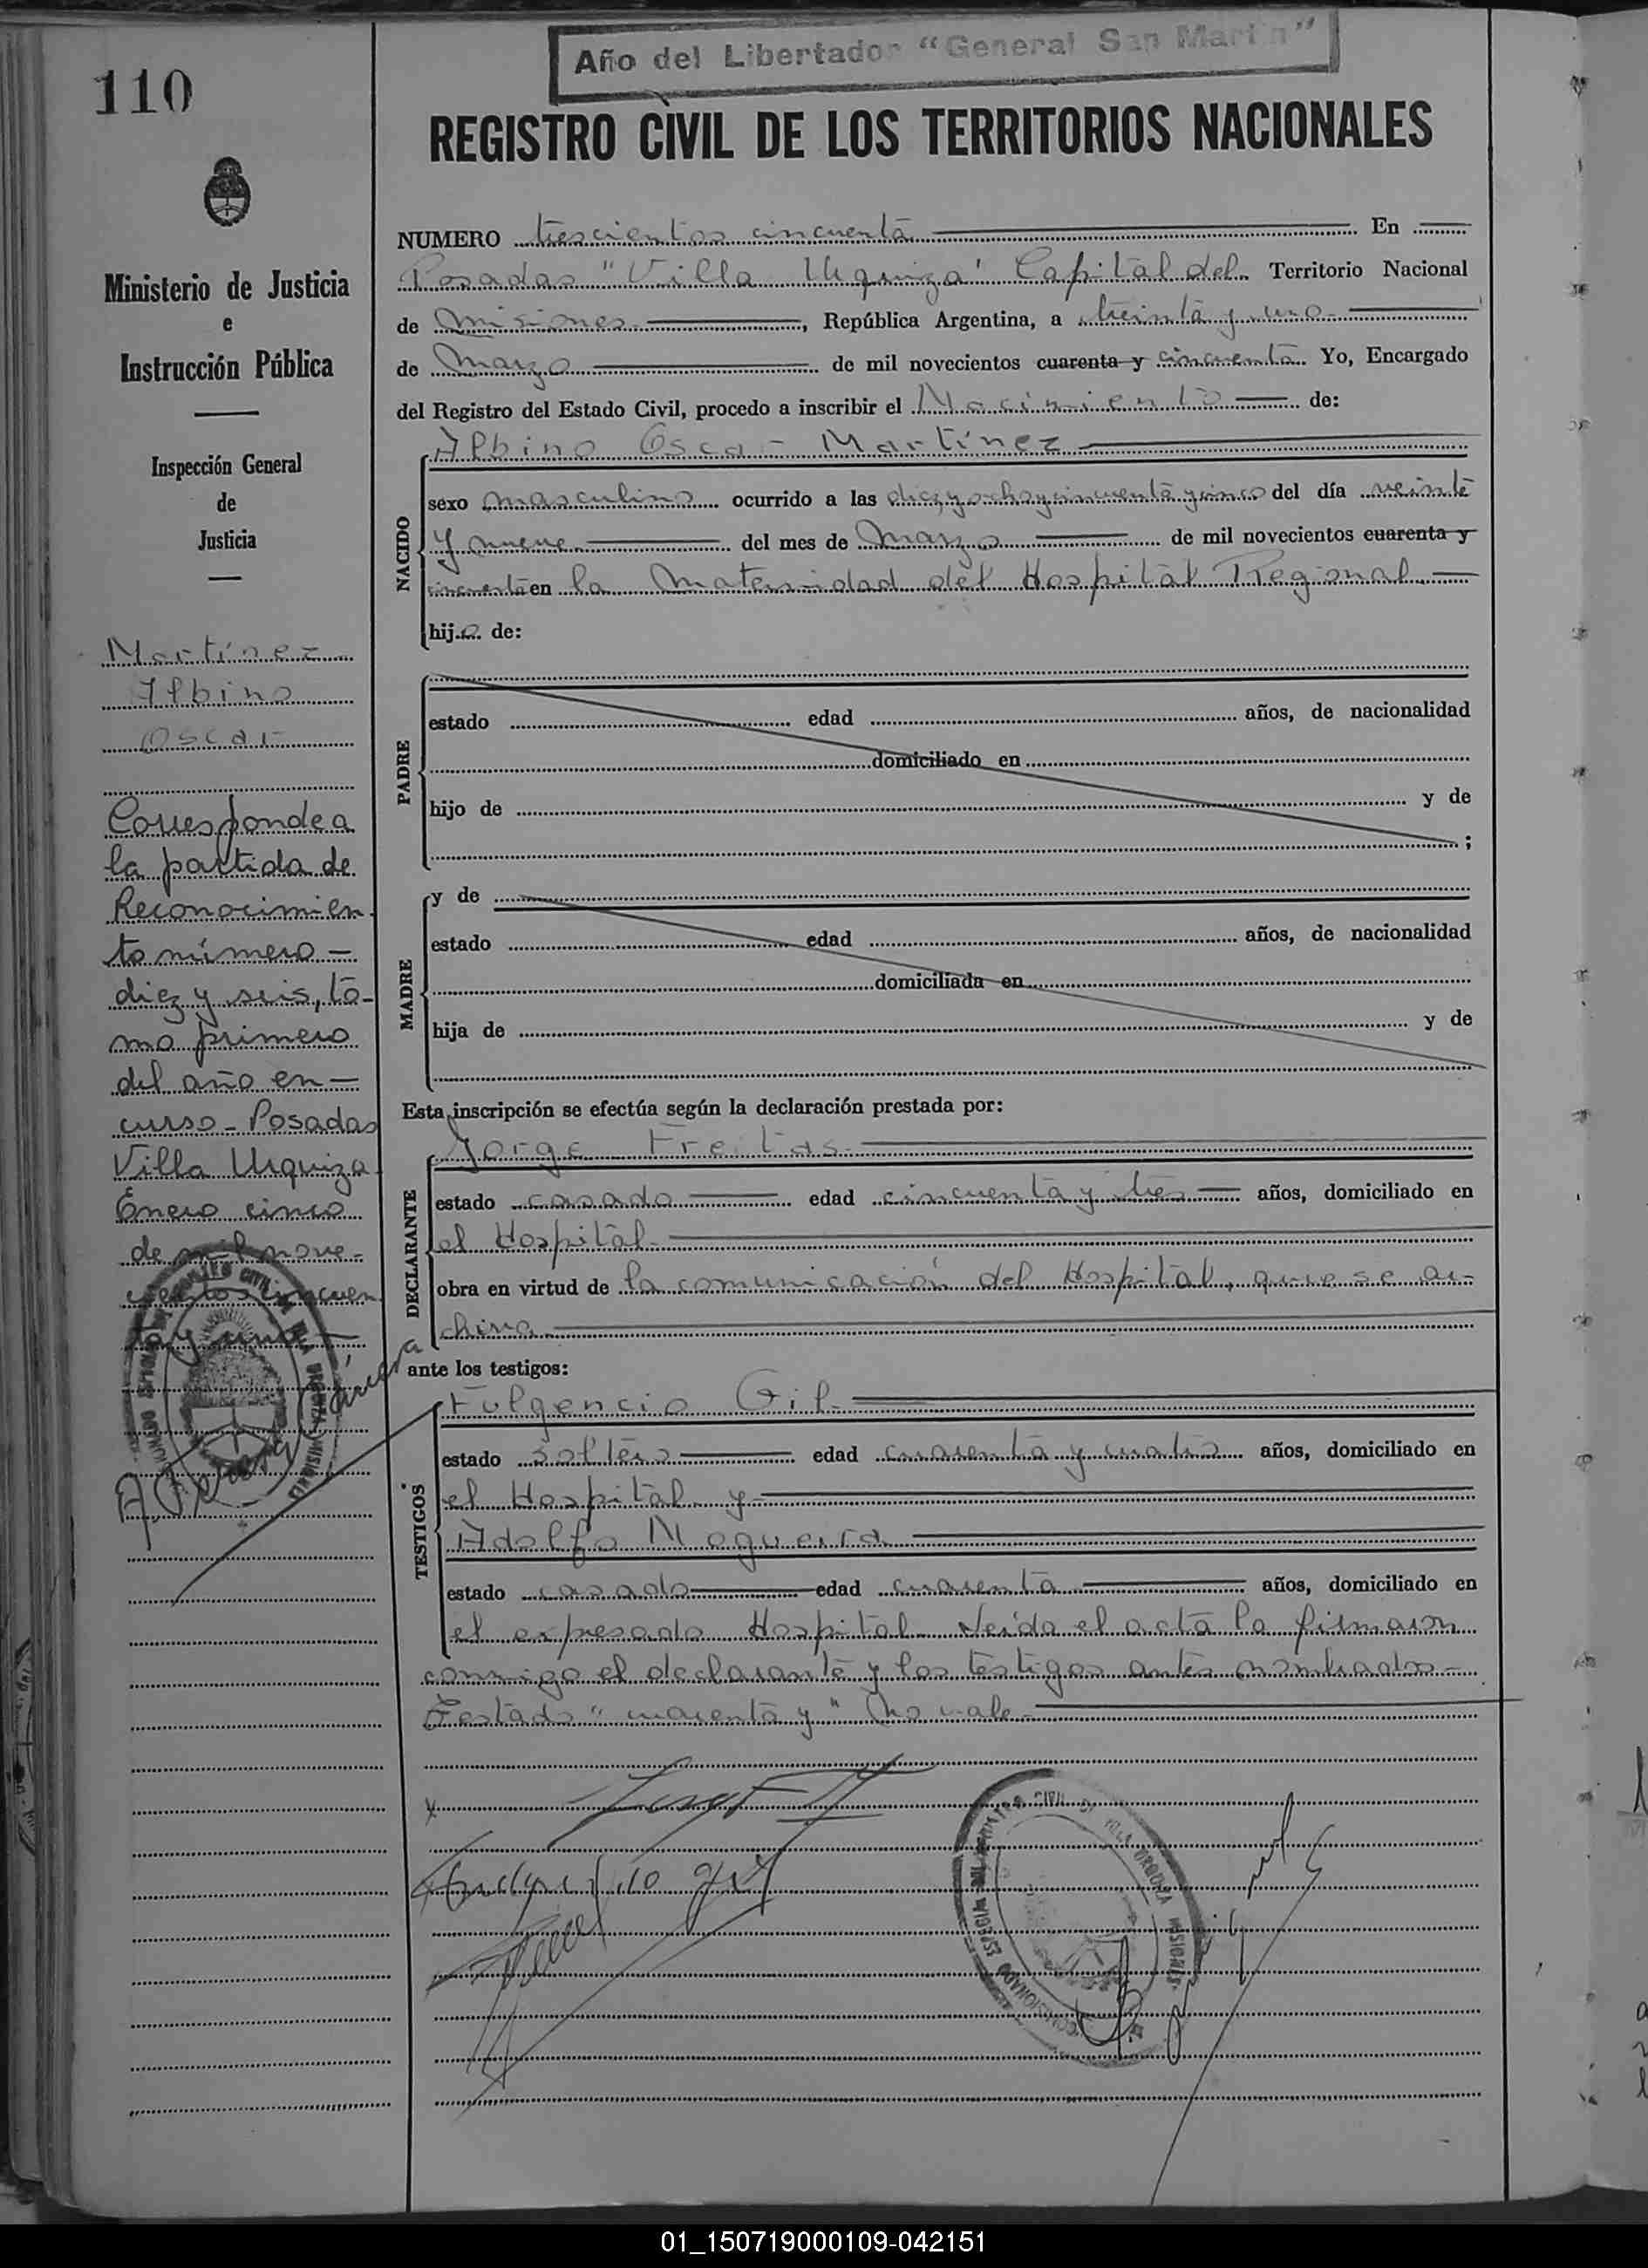 Año del Libertador "General San Martín"
110
REGISTRO CIVIL DE LOS TERRITORIOS NACIONALES
Ministerio de Justicia
e
Instrucción Pública
Inspección General
de
Justicia
Martínez
Albino
Oscar
Corresponde a
la partida de
Reconocimien
to número
diez y seis, to-
mo primero
del año en
curso - Posadas
Villa Urquiza
Enero cinco
de mil nove-
cientos cincuen
ta y uno
NUMERO trescientos cincuenta En
Posadas "Villa Urquiza" Capital del Territorio Nacional
de Misiones, República Argentina, a treinta y uno
de Marzo de mil novecientos cuarenta y cincuenta Yo, Encargado
del Registro del Estado Civil, procedo a inscribir el Nacimiento de:
NACIDO
Albino Oscar Martínez
sexo masculino ocurrido a las diez y ocho y cincuenta y cinco del día veinte
y nueve del mes de Marzo de mil novecientos cuarenta y
cincuenta en la Maternidad del Hospital Regional
hijo de:
PADRE
estado edad años, de nacionalidad
domiciliado en
hijo de y de
;
MADRE
y de
estado edad años, de nacionalidad
domiciliada en
hija de y de
Esta inscripción se efectúa según la declaración prestada por:
DECLARANTE
Jorge Freitas
estado casado edad cincuenta y tres años, domiciliado en
el Hospital
obra en virtud de la comunicación del Hospital, que se ar-
chiva
ante los testigos:
TESTIGOS
Fulgencio Gil
estado soltero edad cuarenta y cuatro años, domiciliado en
el Hospital y
Adolfo Nogueira
estado casado edad cuarenta años, domiciliado en
el expresado Hospital Leída el acta la firmaron
conmigo el declarante y los testigos antes nombrados
Testado "cuarenta y" No vale
01_150719000109-042151